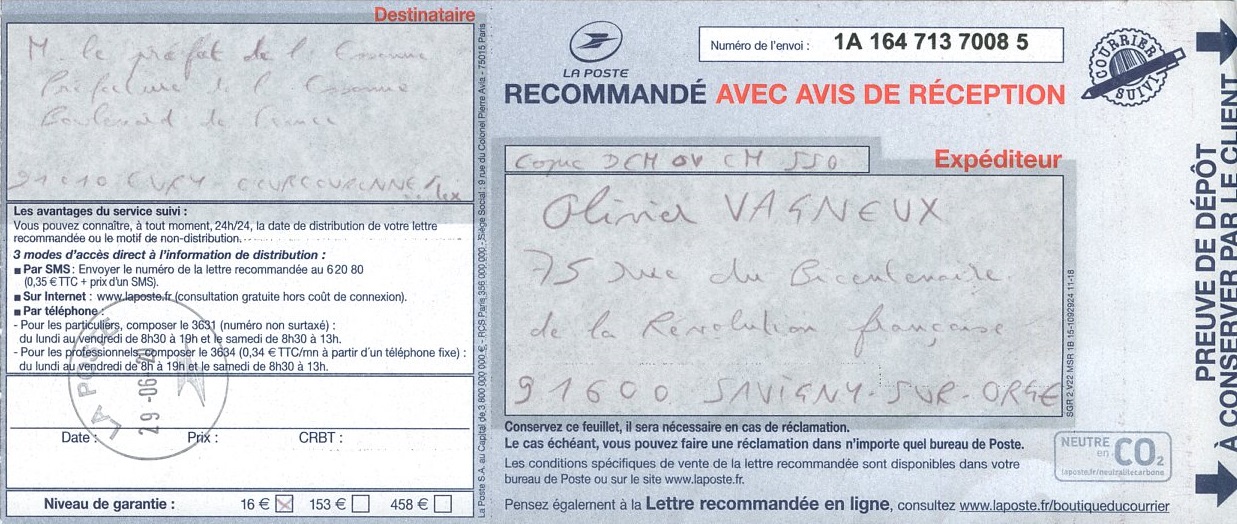 Destinataire
M. le préfet de l'Essonne
Préfecture de l'Essonne
Boulevard de France
91010 EVRY COURCOURONNES Cedex
Les avantages du service suivi :
Vous pouvez connaître, à tout moment, 24h/24, la date de distribution de votre lettre
recommandée ou le motif de non-distribution.
3 modes d'accès direct à l'information de distribution :
■ Par SMS : Envoyer le numéro de la lettre recommandée au 6 20 80
(0,35 € TTC + prix d'un SMS).
■ Sur Internet : www.laposte.fr (consultation gratuite hors coût de connexion).
■ Par téléphone :
- Pour les particuliers, composer le 3631 (numéro non surtaxé) :
du lundi au vendredi de 8h30 à 19h et le samedi de 8h30 à 13h.
- Pour les professionnels, composer le 3634 (0,34 € TTC/mn à partir d'un téléphone fixe) :
du lundi au vendredi de 8h à 19h et le samedi de 8h30 à 13h.
LA POSTE
29-06-20
Date : Prix : CRBT :
Niveau de garantie : 16 € 153 € 458 €
La Poste S.A. au Capital de 3 800 000 000 € - RCS Paris 356 000 000 - Siège Social : 9 rue du Colonel Pierre Avia - 75015 Paris
LA POSTE
Numéro de l'envoi : 1A 164 713 7008 5
COURRIER SUIVI
RECOMMANDÉ AVEC AVIS DE RÉCEPTION
Copie DCM CM 550
Expéditeur
Olivier VAGNEUX
75 rue du Bicentenaire
de la Révolution française
91600 SAVIGNY-SUR-ORGE
SGR 2 V22 MSR 1B 15-1092924 11-18
Conservez ce feuillet, il sera nécessaire en cas de réclamation.
Le cas échéant, vous pouvez faire une réclamation dans n'importe quel bureau de Poste.
Les conditions spécifiques de vente de la lettre recommandée sont disponibles dans votre
bureau de Poste ou sur le site www.laposte.fr.
Pensez également à la Lettre recommandée en ligne, consultez www.laposte.fr/boutiqueducourrier
NEUTRE en CO2
laposte.fr/neutralitecarbone
PREUVE DE DÉPÔT
À CONSERVER PAR LE CLIENT